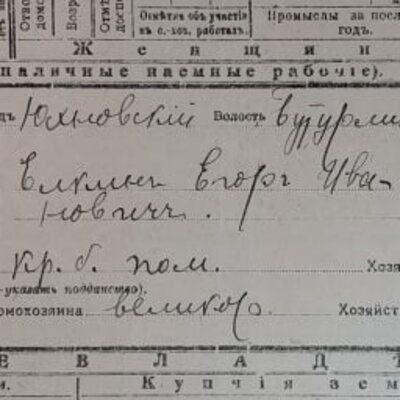 Отметка объ участіи
в с.-хоз. работахъ.
Промыслы за посл
годъ.
Женщин
наличные наемные рабочіе).
дъ Юхновскій Волость Бутурли
Елкинъ Егоръ Ива-
новичъ.
кр. б. пом. Хозя
указать подданство).
омохозяина великор. Хозяйст
Купчія зем